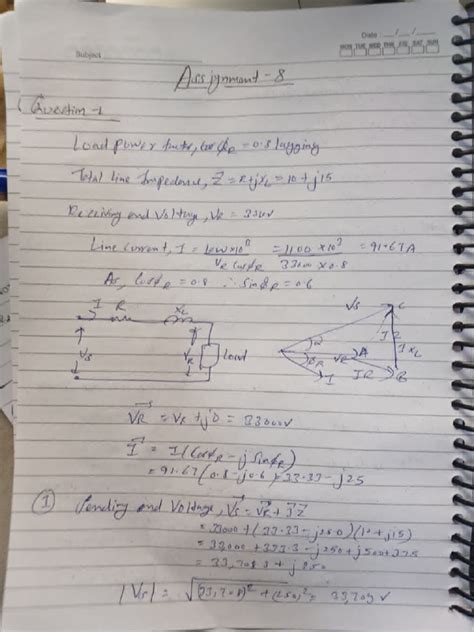 Date : __/__/__
Subject
MON TUE WED THU FRI SAT SUN
Assignment - 8
Question-1
Load power factor, cosϕR = 0.8 lagging
Total line Impedence, Z = R+jXL = 10 + j15
Receiving end Voltage, VR = 33kV
Line current, I = kW×10³ / VR cosϕR = 1100 ×10³ / 33000 × 0.8 = 41.67 A
As, cosϕR = 0.8 ∴ sinϕR = 0.6
I R XL
VS VR Load
VS C
I XL
VR A I R B
I
VR = VR + j0 = 33000V
I = I(cosϕR - j sinϕR)
= 41.67(0.8 - j0.6) = 33.33 - j25
① Sending end Voltage, VS = VR + I Z
= 33000 + (33.33 - j25.0)(10 + j15)
= 33000 + 333.3 - j250 + j500 + 375
= 33,708.3 + j 250
|VS| = √(33,708)² + (250)² = 33,709 V